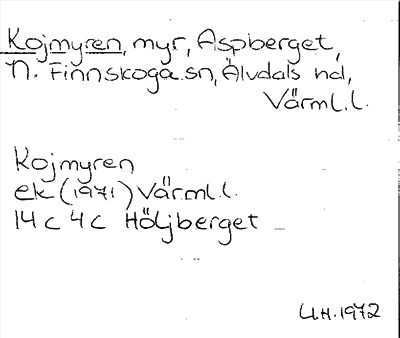 Kojmyren, myr, Aspberget,
N. Finnskoga sn, Älvdals hd,
Värml. l.
Kojmyren
ek (1971) Värml. l.
14 c 4 c Höljberget
U.H. 1972